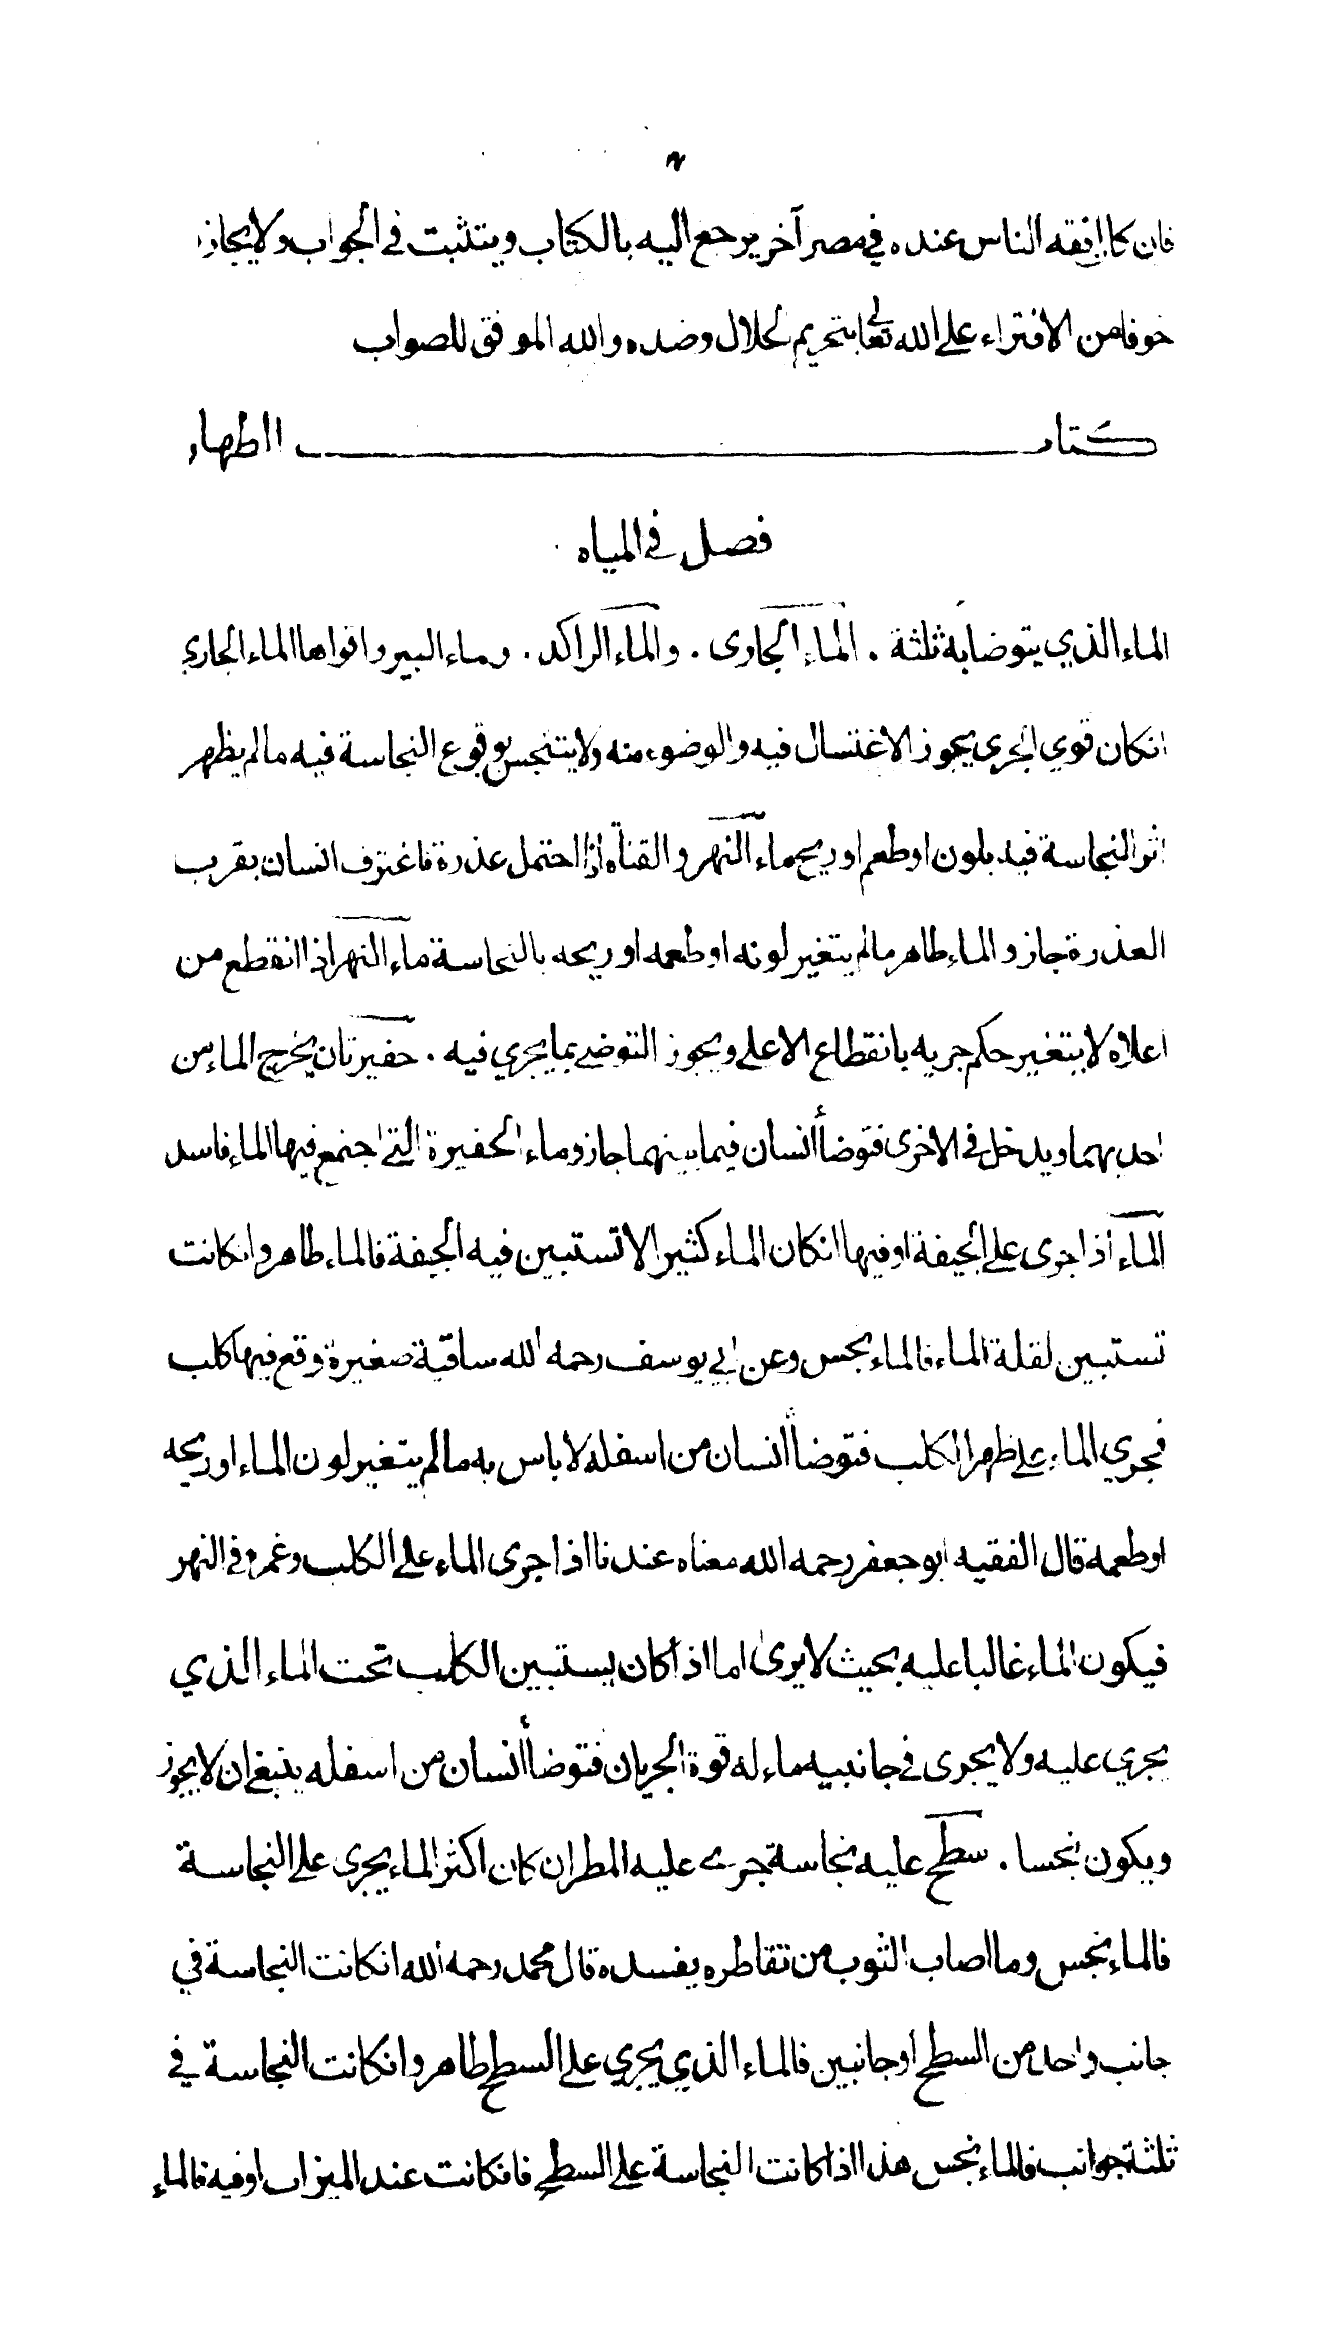 ٧
فان كان افقه الناس عنده في مصر آخر يرجع اليه بالكتاب ويتثبت في الجواب ولا يجازف
خوفا من الافتراء على الله تعالى بتحريم لحلال وضده والله الموفق للصواب
كتاب الطهارة
فصل في المياه
الماء الذي يتوضأ به ثلثة . الماء الجارى . والماء الراكد . وماء البير واقواها الماء الجاري
انكان قوي الجرى يجوز الاغتسال فيه والوضوء منه ولا يتنجس بوقوع النجاسة فيه مالم يظهر
اثر النجاسة فيه بلون او طعم او ريح ماء النهر والقناة اذا احتمل عذرة فاغترف انسان بقرب
العذرة جاز والماء طاهر مالم يتغير لونه او طعمه او ريحه بالنجاسة ماء النهر اذا انقطع من
اعلاه لا يتغير حكم جريه بانقطاع الاعلى ويجوز التوضي بما يجري فيه . حفيرتان يخرج الماء من
احديهما ويدخل في الاخرى فتوضأ انسان فيما بينهما جاز وماء الحفيرة التي اجتمع فيها الماء فاسد
الماء اذا جرى على الجيفة او فيها انكان الماء كثيرا لا تستبين فيه الجيفة فالماء طاهر وانكانت
تستبين لقلة الماء فالماء نجس وعن ابي يوسف رحمه الله ساقية صغيرة وقع فيها كلب
فجري الماء على ظهر الكلب فتوضأ انسان من اسفله لا باس به مالم يتغير لون الماء او ريحه
او طعمه قال الفقيه ابو جعفر رحمه الله معناه عندنا اذا جرى الماء على الكلب وغمر وفي النهر
فيكون الماء غالبا عليه بحيث لا يرى اما اذا كان يستبين الكلب تحت الماء الذي
يجري عليه ولا يجرى في جانبيه ماء له قوة الجريان فتوضأ انسان من اسفله ينبغي ان لا يجوز
ويكون نجسا . سطح عليه نجاسة جرى عليه المطر ان كان اكثر الماء يجرى على النجاسة
فالماء نجس وما اصاب الثوب من تقاطره يفسده قال محمد رحمه الله انكانت النجاسة في
جانب واحد من السطح او جانبين فالماء الذي يجري على السطح طاهر وانكانت النجاسة في
ثلثة جوانب فالماء نجس هذا اذا كانت النجاسة على السطح فانكانت عند الميزاب او فيه فالماء